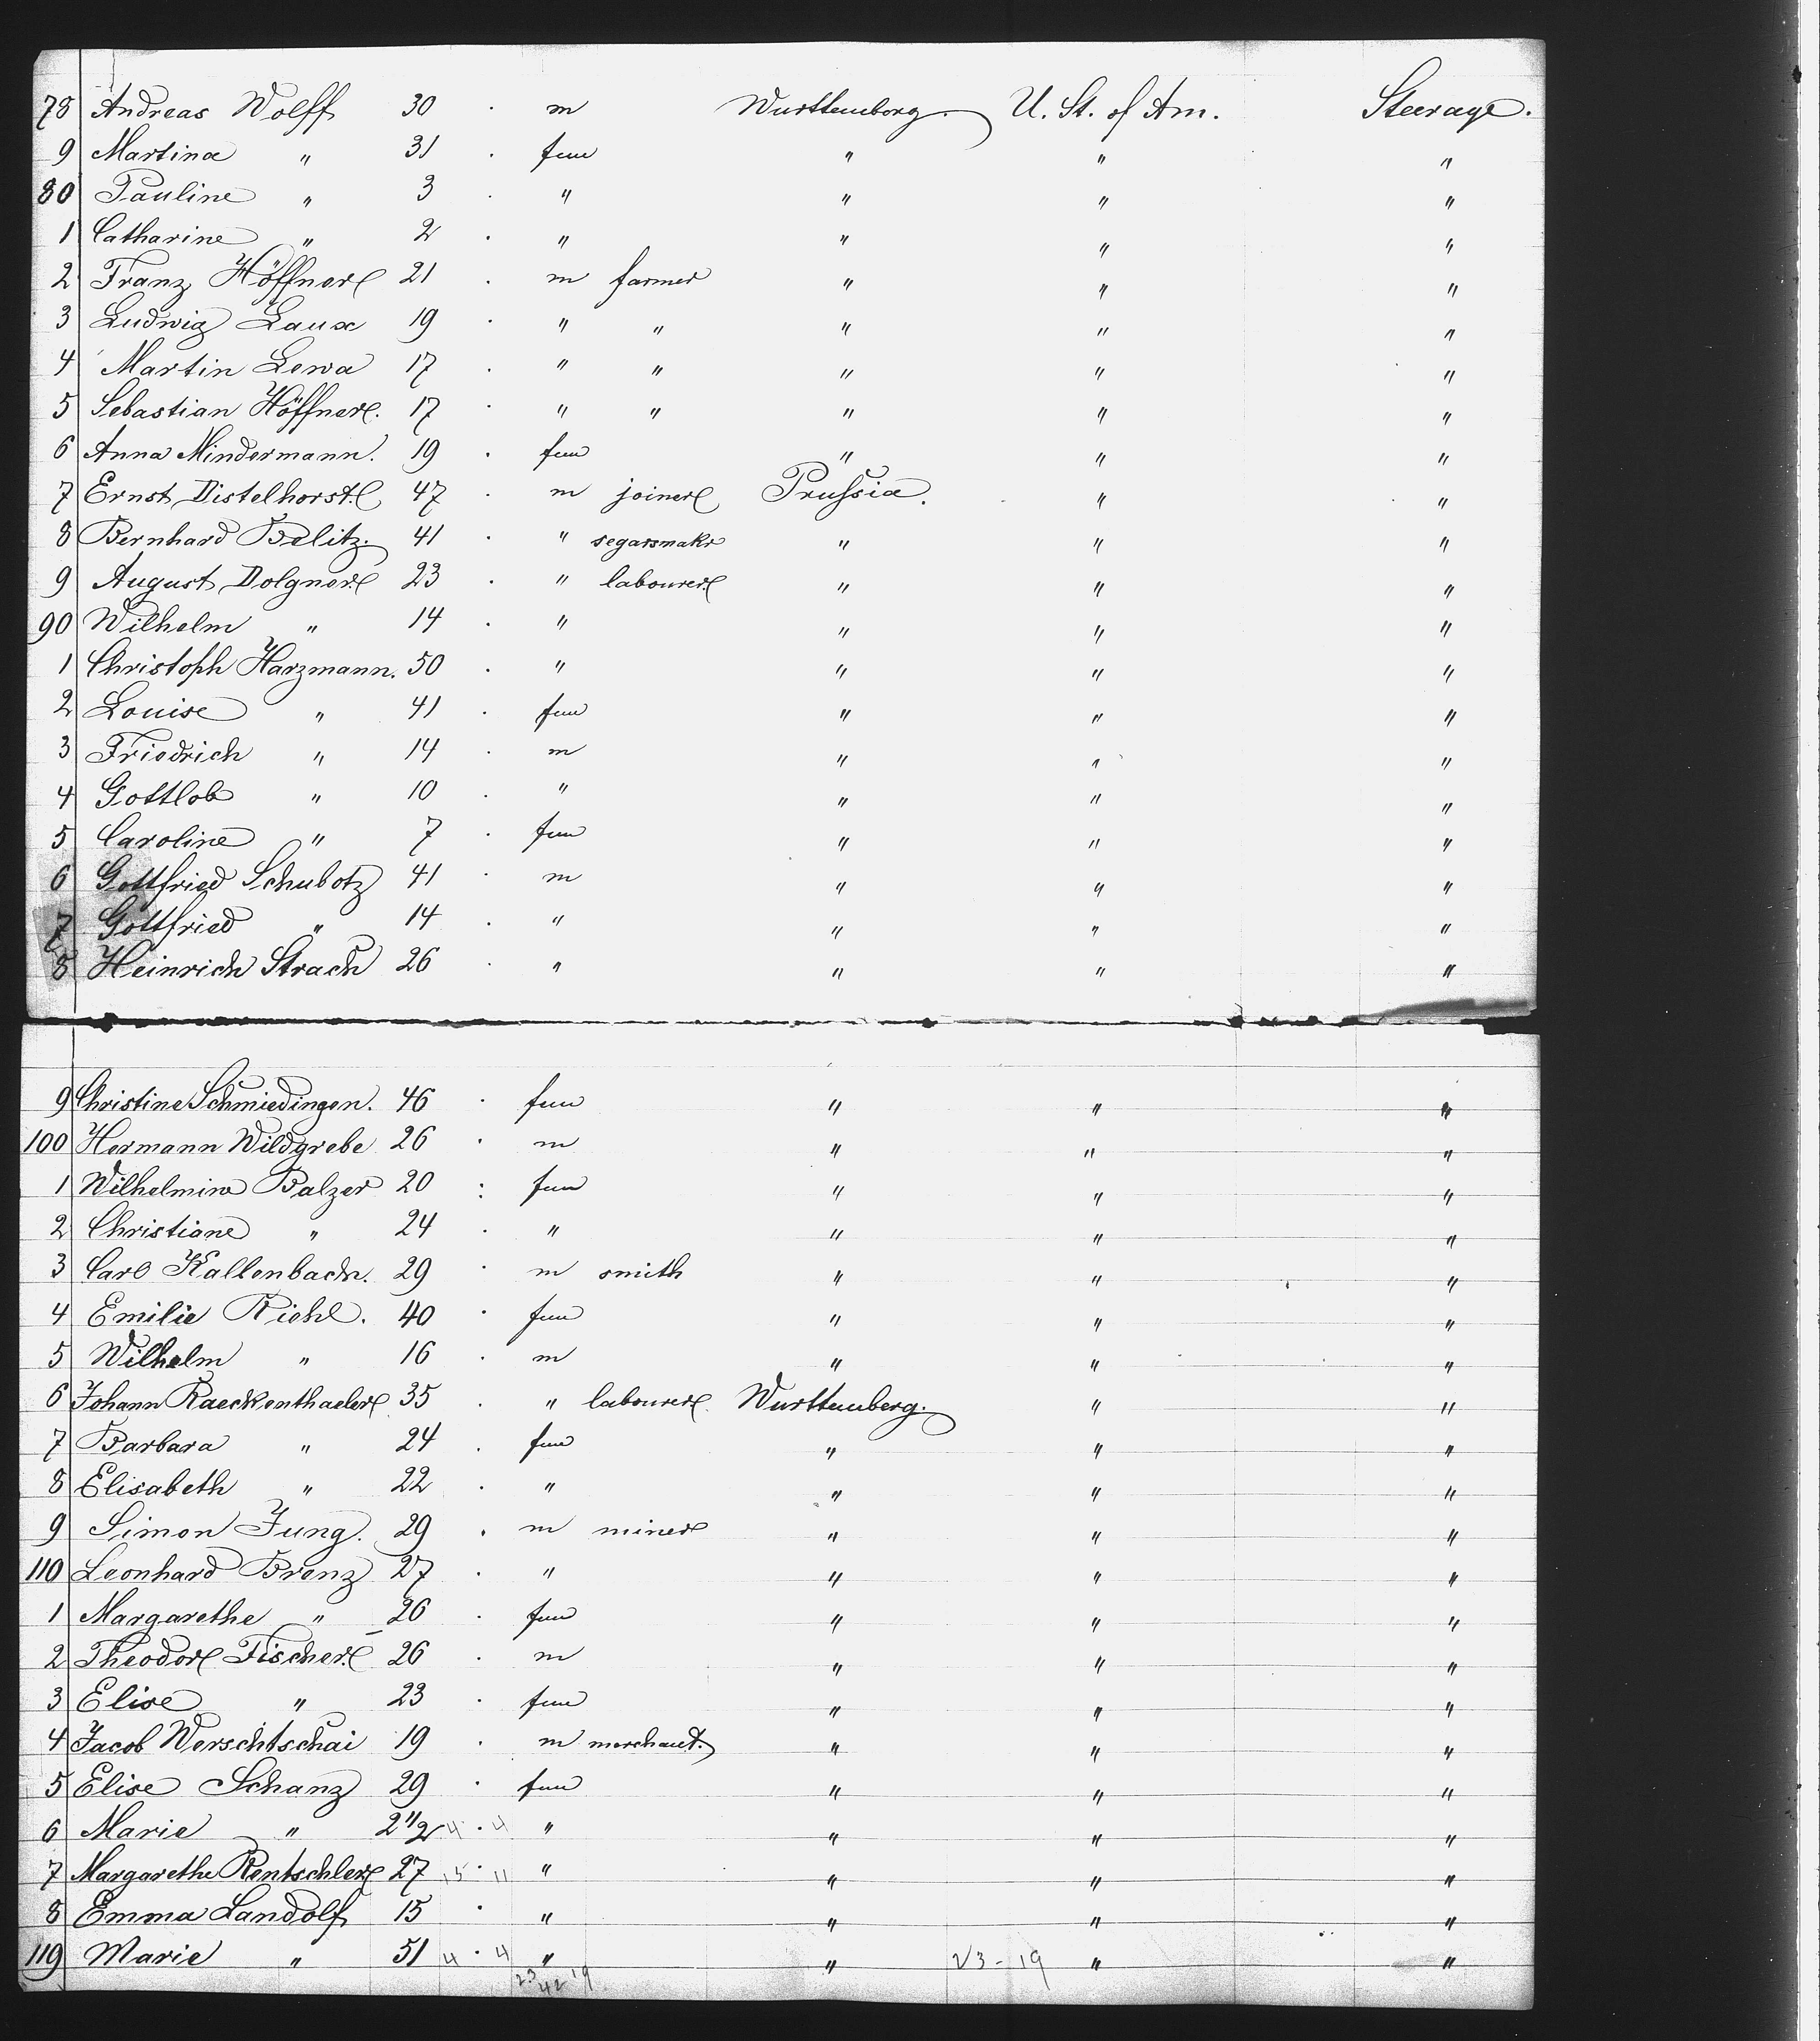 78 Andreas Wolff 30 . m Wurttemberg. U. St. of Am. Steerage.
9 Martina " 31 . fem " " "
80 Pauline " 3 . " " " "
1 Catharine " 2 . " " " "
2 Franz Höffner 21 . m farmer " " "
3 Ludwig Laux 19 . " " " " "
4 Martin Lewa 17 . " " " " "
5 Sebastian Höffner. 17 . " " " " "
6 Anna Mindermann. 19 . fem " " "
7 Ernst Distelhorst. 47 . m joiner Prussia. " "
8 Bernhard Belitz. 41 . " segarsmakr " " "
9 August Dolgner. 23 . " labourer. " " "
90 Wilhelm " 14 . " " " "
1 Christoph Harzmann. 50 . " " " "
2 Louise " 41 . fem " " "
3 Friedrich " 14 . m " " "
4 Gottlob " 10 . " " " "
5 Caroline " 7 . fem " " "
6 Gottfried Schubotz 41 . m " " "
7 Gottfried " 14 . " " " "
8 Heinrich Strach 26 . " " " "
9 Christine Schmiedingen. 46 . fem " " "
100 Hermann Wildgrebe 26 . m " " "
1 Wilhelmine Balzer 20 : fem " " "
2 Christiane " 24 . " " " "
3 Carl Kallenbach. 29 . m smith " " "
4 Emilie Riehl. 40 . fem " " "
5 Wilhelm " 16 . m " " "
6 Johann Raeckenthaeler 35 . " labourer. Wurttemberg. " "
7 Barbara " 24 . fem " " "
8 Elisabeth " 22 . " " " "
9 Simon Jung. 29 . m miner " " "
110 Leonhard Brenz 27 . " " " "
1 Margarethe " 26 . fem " " "
2 Theodor Fischer. 26 . m " " "
3 Elise " 23 . fem " " "
4 Jacob Werschtschai 19 . m merchant. " " "
5 Elise Schanz 29 . fem " " "
6 Marie " 2 1/2 4 . 4 " " " "
7 Margarethe Rentschler 27 15 . 11 " " " "
8 Emma Landolf 15 . " " " "
119 Marie " 51 4 . 4 " " 23 - 19 " "
23 19
42